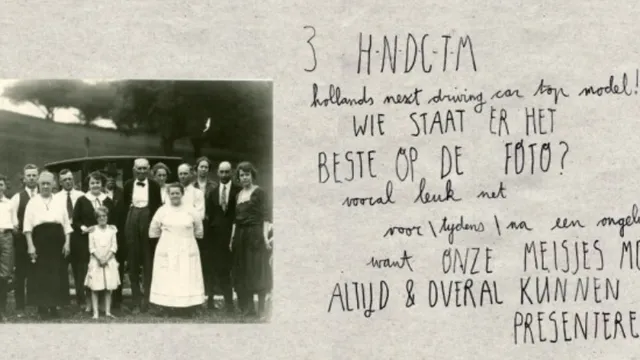 3 H·N·DC·T·M
hollands next driving car top model!
WIE STAAT ER HET
BESTE OP DE FOTO?
vooral leuk net
voor \ tijdens \ na een ongelu
want ONZE MEISJES MO
ALTIJD & OVERAL KUNNEN
PRESENTERE